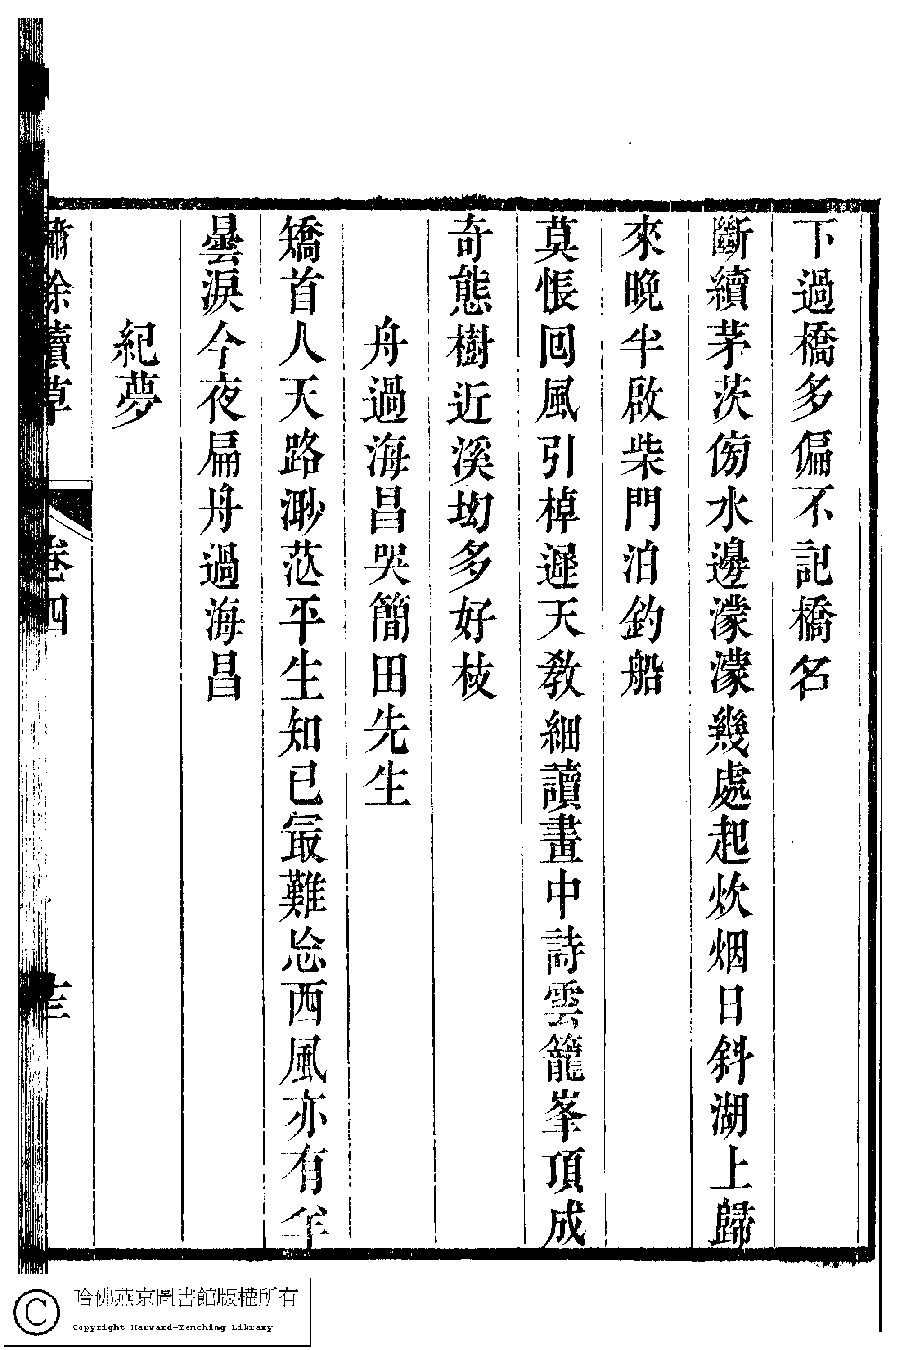 下過橋多偏不記橋名
斷續茅茨傍水邊濛濛幾處起炊烟日斜湖上歸
來晚半啟柴門泊釣船
莫悵回風引棹遲天教細讀畫中詩雲籠峯頂成
奇態樹近溪坳多好枝
舟過海昌哭簡田先生
矯首人天路渺茫平生知已㝡難忘西風亦有羊
曇淚今夜扁舟過海昌
紀夢
繡餘續草
卷四
哈佛燕京圖書館版權所有
Copyright Harvard-Yenching Library